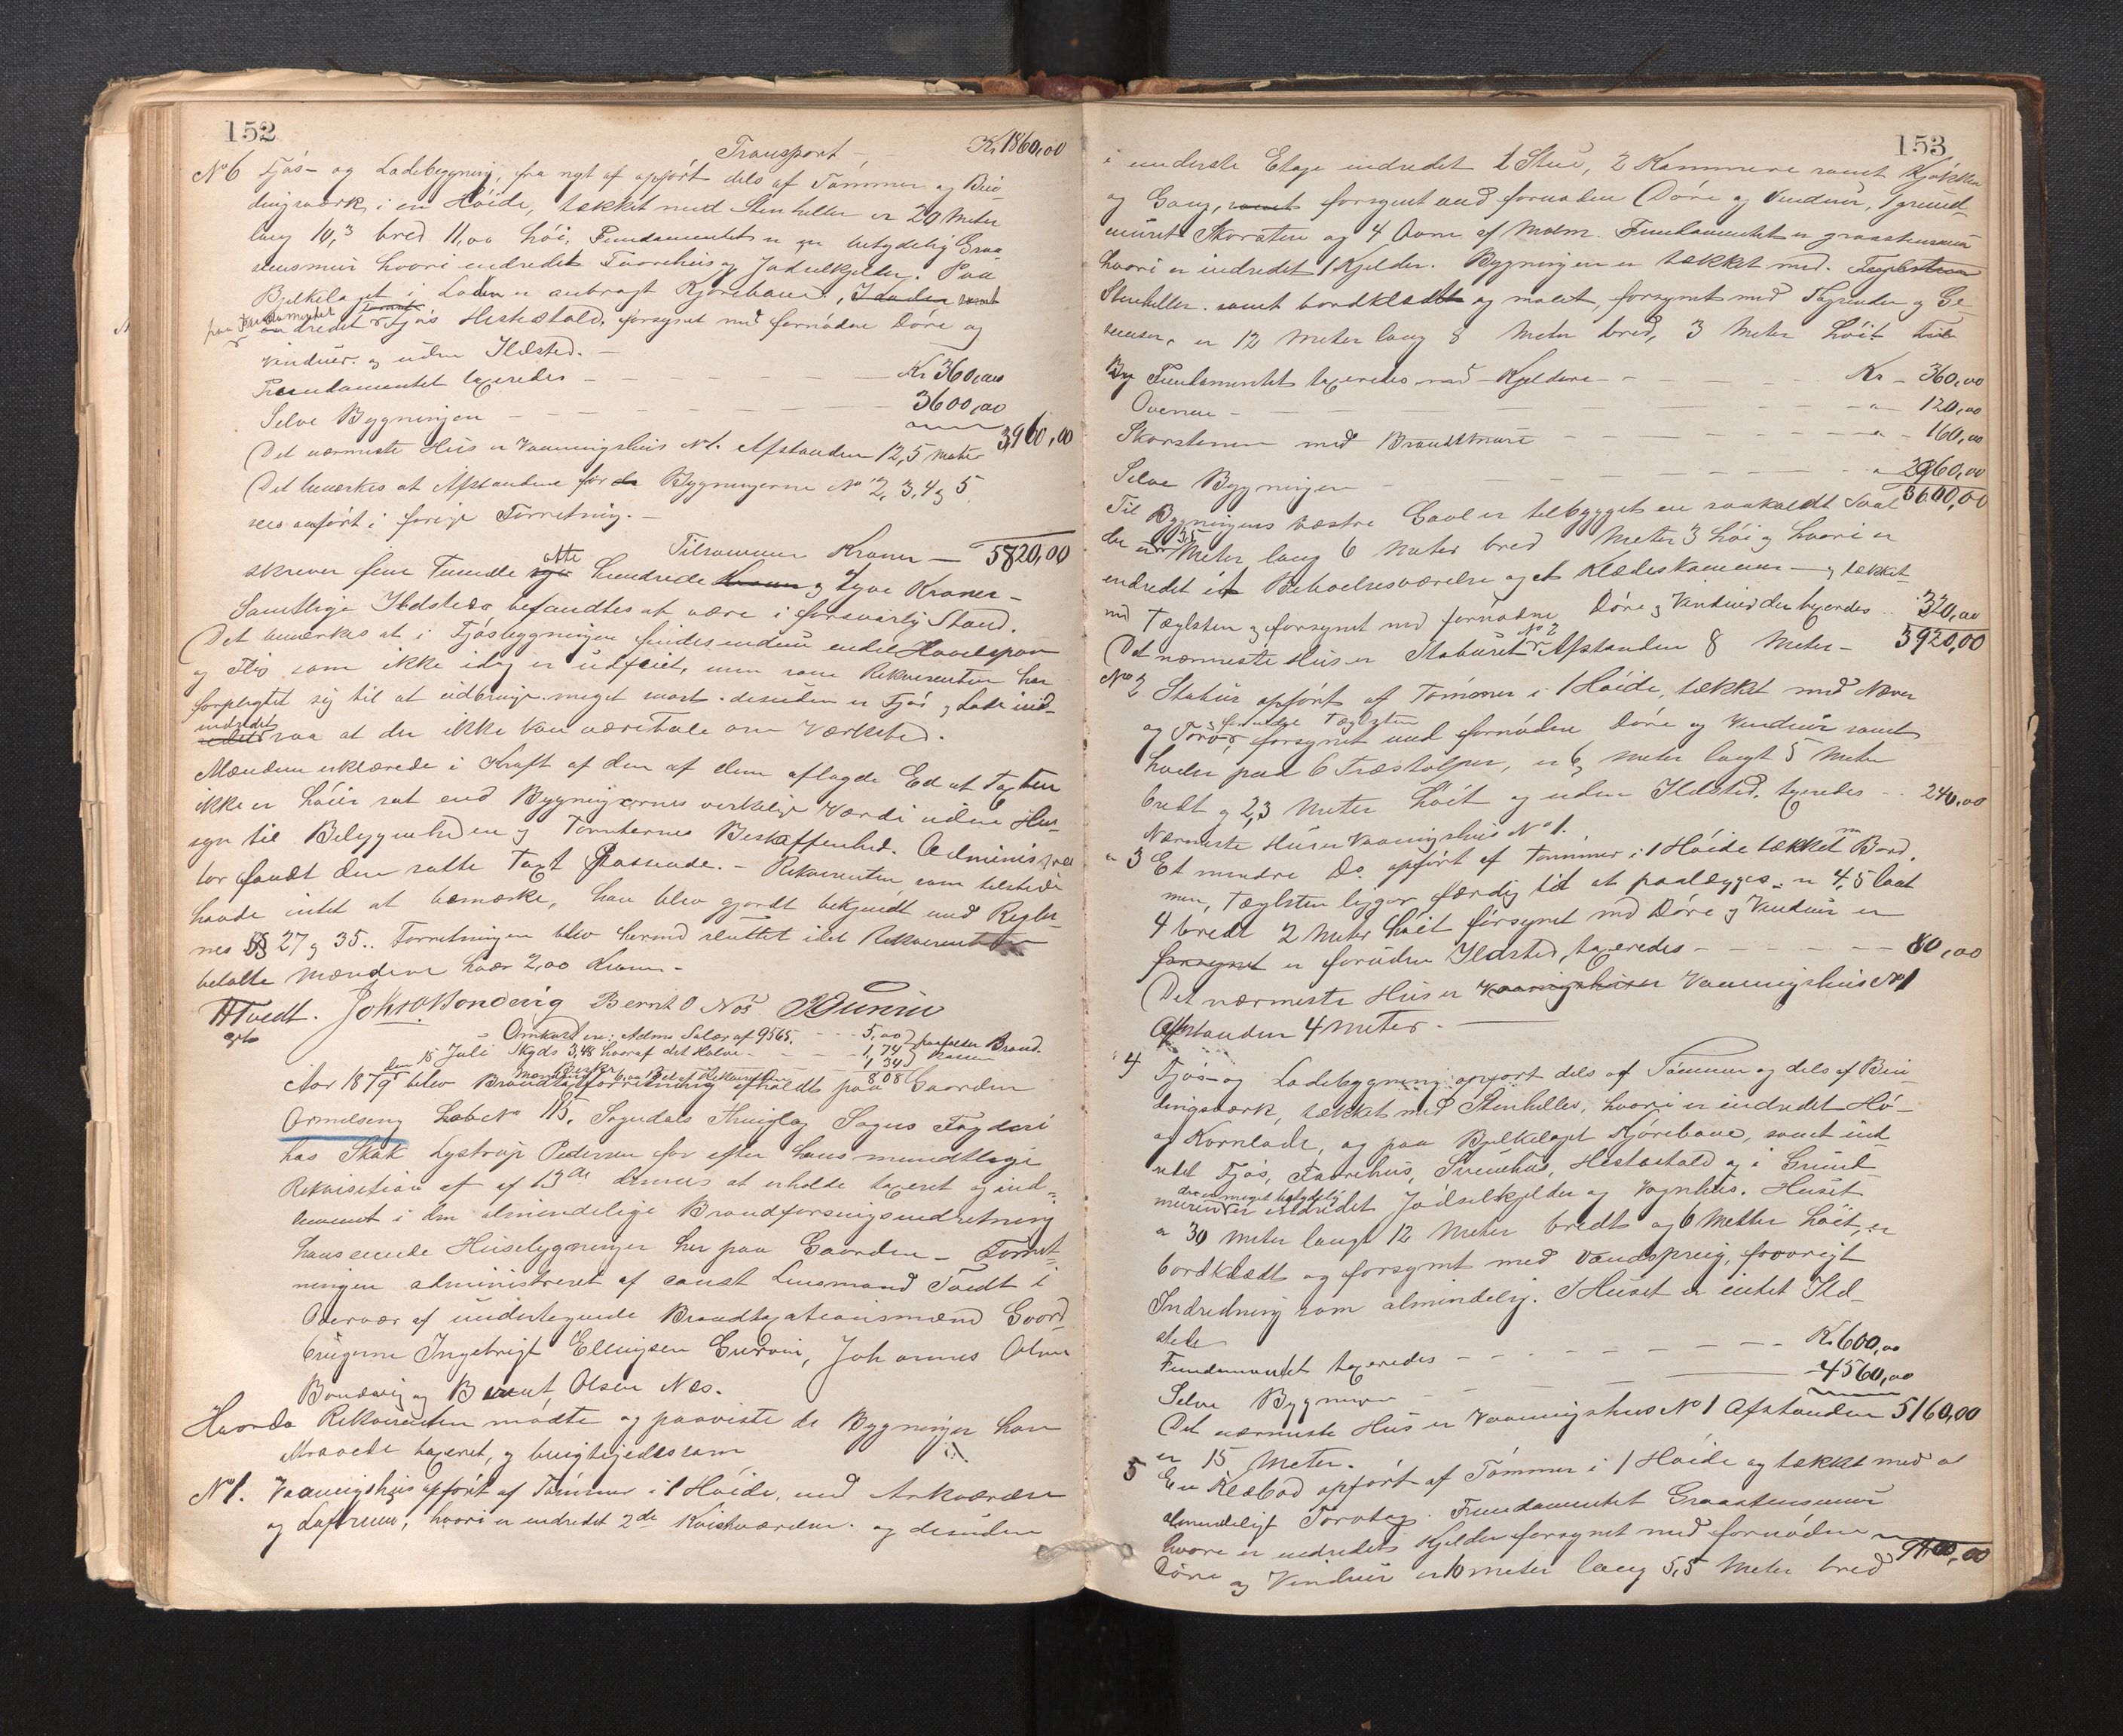 152
Transport — Kr 1860,00
No 6 Fjós- og Ladebygning, fra nyt af opfört dels af Tømmer og Bin-
dingsværk i en Höide, tækket med Stenheller er 20 Meter
lang 10,3 bred 11,00 höi, Fundamentet er en betydelig Graa
stensmur hvori indredet Faarehus og Jødselkjelder. Paa
Bjelkelaget i Laden er anbragt Kjörebane, I Laden samt
paa Fundamentet
indredet Fjös Hestestald, forsynet med fornödne Döre og
Vinduer og uden Ildsted. —
Fundamentet taxeredes — Kr 360,00
Selve Bygningen — 3600,00
3960,00
Det nærmeste Hus er Vaaningshus No 1. Afstanden 12,5 Meter
Det bemærkes at Afstandene for de Bygningerne No 2, 3, 4 og 5
sees anfört i forrige Forretning. —
Tilsammen Kroner — 5820,00
skriver fem Tusinde otte hundrede Kroner og Tyve Kroner —
Samtlige Ildsteder befandtes at være i forsvarlig Stand.
Det bemærkes at i Fjösbygningen findes endnu endel Hovelspon
og Flis som ikke idag er udfeiet, men som Rekvirenten har
forpligtet sig til at udbringe meget snart. desuden er Fjös og Lade ind-
indredet saa at der ikke kan være Tale om Værksted.
Mændene erklærede i Kraft af den af dem aflagde Ed at Taxten
ikke er höiere sat end Bygningernes virkelige Værdi uden Hen-
syn til Beliggenheden og Tomternes Beskaffenhed. Administra
tor fandt den satte Taxt passende. — Rekvirenten, som tilstede
havde intet at bemærke, han blev gjordt bekjendt med Regler-
nes §§ 27 og 35. Forretningen blev hermed sluttet idet Rekvirenten
betalte Mændene hver 2,00 Kroner —
HTvedt. Johs O Bondevig Bernt O Næs
Omkostn: Adms Salær af 9565. — 5,00 paafalder Brand-
Skyds 3,48 hvoraf det Halve — 1,74 kassen
1,34
8 08
Aar 1879 den 15 Juli blev Brandtaxtforretning afholdt paa Gaarden
Ormelseng Løbe No 115, Sogndals Thinglag Sogns Fogderi
hos Skak Lystrup Pedersen for efter hans mundtlige
Rekvisition af af 13de dennes at erholde taxeret og ind-
lemmet i den almindelige Brandforsingsindretning
hans eiende Husebygninger her paa Gaarden — Forret-
ningen administreret af const Lensmand Tvedt i
Overvær af undertegnede Brandtaxationsmænd Gaard
brugerne Ingebrigt Ellingsen Eidsvin, Johannes Olsen
Bondevig og Bernt Olsen Næs.
Hvorda Rekvirenten mødte og paaviste de Bygninger han
attraaede taxeret, og besigtigedes som
No 1. Vaaningshus opfört af Tömmer i 1 Höide, med Arkværelse
og Loftrum, hvori er indredet 2de Kvistværelser. og desuden
153
i underste Etage indredet 1 Stue, 2 Kammere samt Kjökken
og Gang, samt forsynet med fornødne Döre og Vinduer, 1 grund-
muret Skorsten og 4 Ovne af Malm. Fundamentet er graastensmur
hvori er indredet 1 Kjelder. Bygningen er tækket med. Teglsten
Stenheller. samt bordklædt og malet, forsynet med Tagrender og Ge
simser, er 12 Meter lang 8 Meter bred, 3 Meter höit
Fundamentet taxeredes med Kjelder — Kr — 360,00
Ovnene — " 120,00
Skorstenen med Brandmure — " 160,00
Selve Bygningen — " 2960,00
3600,00
Til Bygningens vestre Gavl er tilbygget en saakaldt Sval
der er 3,5 Meter lang 6 Meter bred Meter 3 höi og hvori er
indredet et Beboelsesværelse og et Klædeskammer — og tækket
med Tæglsten og forsynet med fornødne Döre og Vinduer der taxeredes .. 320,00
Det nærmeste Hus er Staburet No 2 Afstanden 8 Meter — 3920,00
No 2 Stabur opfört af Tömmer i 1 Höide, tækket med Næver
og Torv, forsynet med fornödne Döre og Vinduer samt
hviler paa 6 Træstolper, er 6 Meter langt 5 Meter
bredt og 2,3 Meter höit og uden Ildsted, taxeredes .. 240,00
Nærmeste Hus er Vaaningshus No 1.
" 3 Et mindre Do. opfört af Tømmer i 1 Höide tækket m Bord,
men, Tæglsten ligger færdig til at paalægges. er 4,5 langt
4 bredt 2 Meter höit forsynet med Döre og Vinduer er
forsynet er foruden Ildsted, taxeredes — 80,00
Det nærmeste Hus er Vaaningshuset Vaaningshus No 1
Afstanden 4 Meter. —
" 4 Fjós- og Ladebygning opfört dels af Tömmer og dels af Bin-
dingsværk, tækket med Stenheller, hvori er indredet Hö-
og Kornlade, og paa Bjelkelaget Kjörebane, samt ind
redet Fjös, Faarehus, Svinehus, Hestestald og i Grund-
der er meget betydelig
muren er indredet Jødselkjelder og Vognhus. Huset
er 30 Meter langt 12 Meter bredt og 6 Meter höit, er
bordklædt og forsynet med Vandspring, forövrigt
Indredning som almindelig. I Huset er intet Ild-
sted
Fundamentet taxeredes — Kr 600,00
Selve Bygningen — 4560,00
Det nærmeste Hus er Vaaningshus No 1 Afstanden 5160,00
er 15 Meter.
5 En Klæbod opfört af Tömmer i 1 Höide og tækket med
almindeligt Torvtag. Fundamentet Graastensmur
hvori er indredet Kjelder forsynet med fornödne
Döre og Vinduer er 10 meter lang 5,5 Meter bred